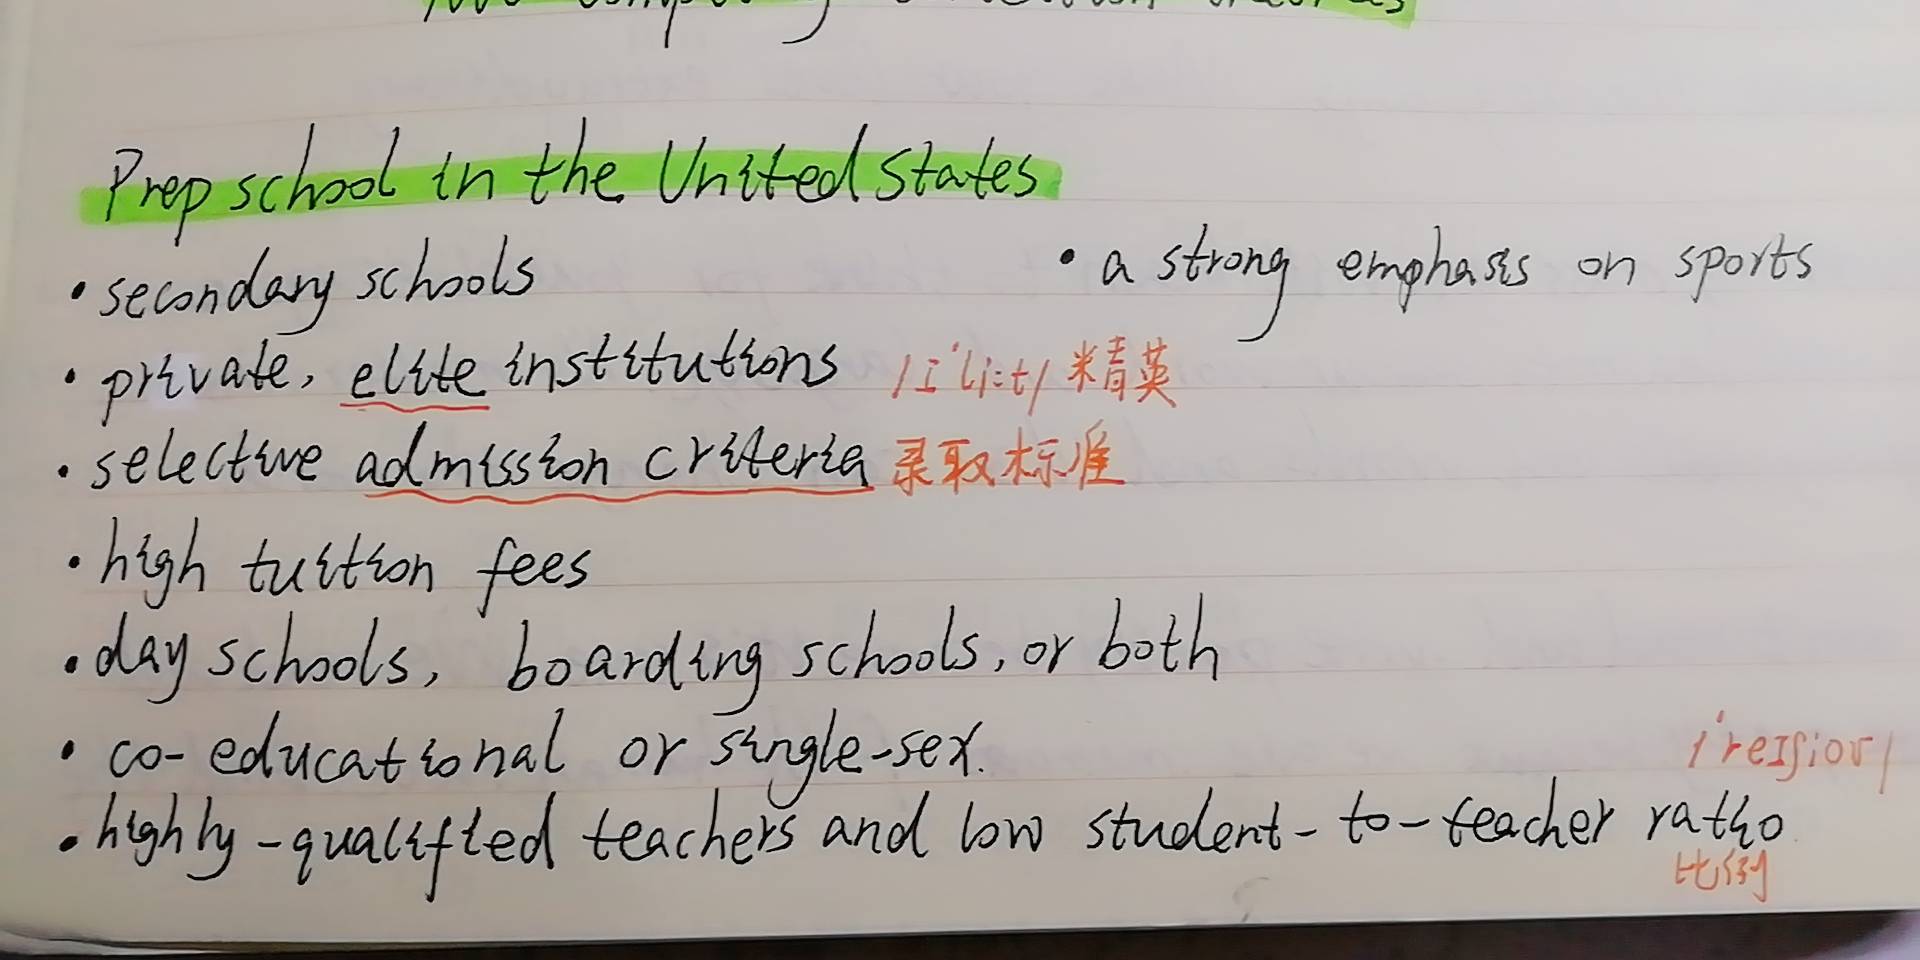 Prep school in the United States
• secondary schools
• a strong emphasis on sports
• private, elite institutions /ɪˈliːt/ 精英
• selective admission criteria 录取标准
• high tuition fees
• day schools, boarding schools, or both
• co-educational or single-sex.
/ˈreɪʃiəʊ/
• highly-qualified teachers and low student-to-teacher ratio.
比例